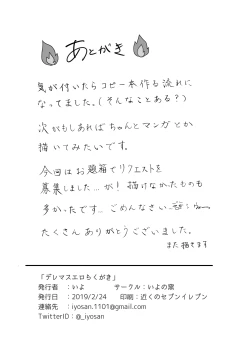 あとがき
気が付いたらコピー本作る流れに
なってました。(そんなことある?)
次がもしあればちゃんとマンガとか
描いてみたいです。
今回はお題箱でリクエストを
募集しました…が!描けなかったものも
多かったです…ごめんなさい…
たくさんありがとうございました。
また描きます
「デレマスエロらくがき」
発行者 :いよ サークル:いよの窓
発行日 :2019/2/24 印刷:近くのセブンイレブン
連絡先 :iyosan.1101@gmail.com
TwitterID:@_iyosan